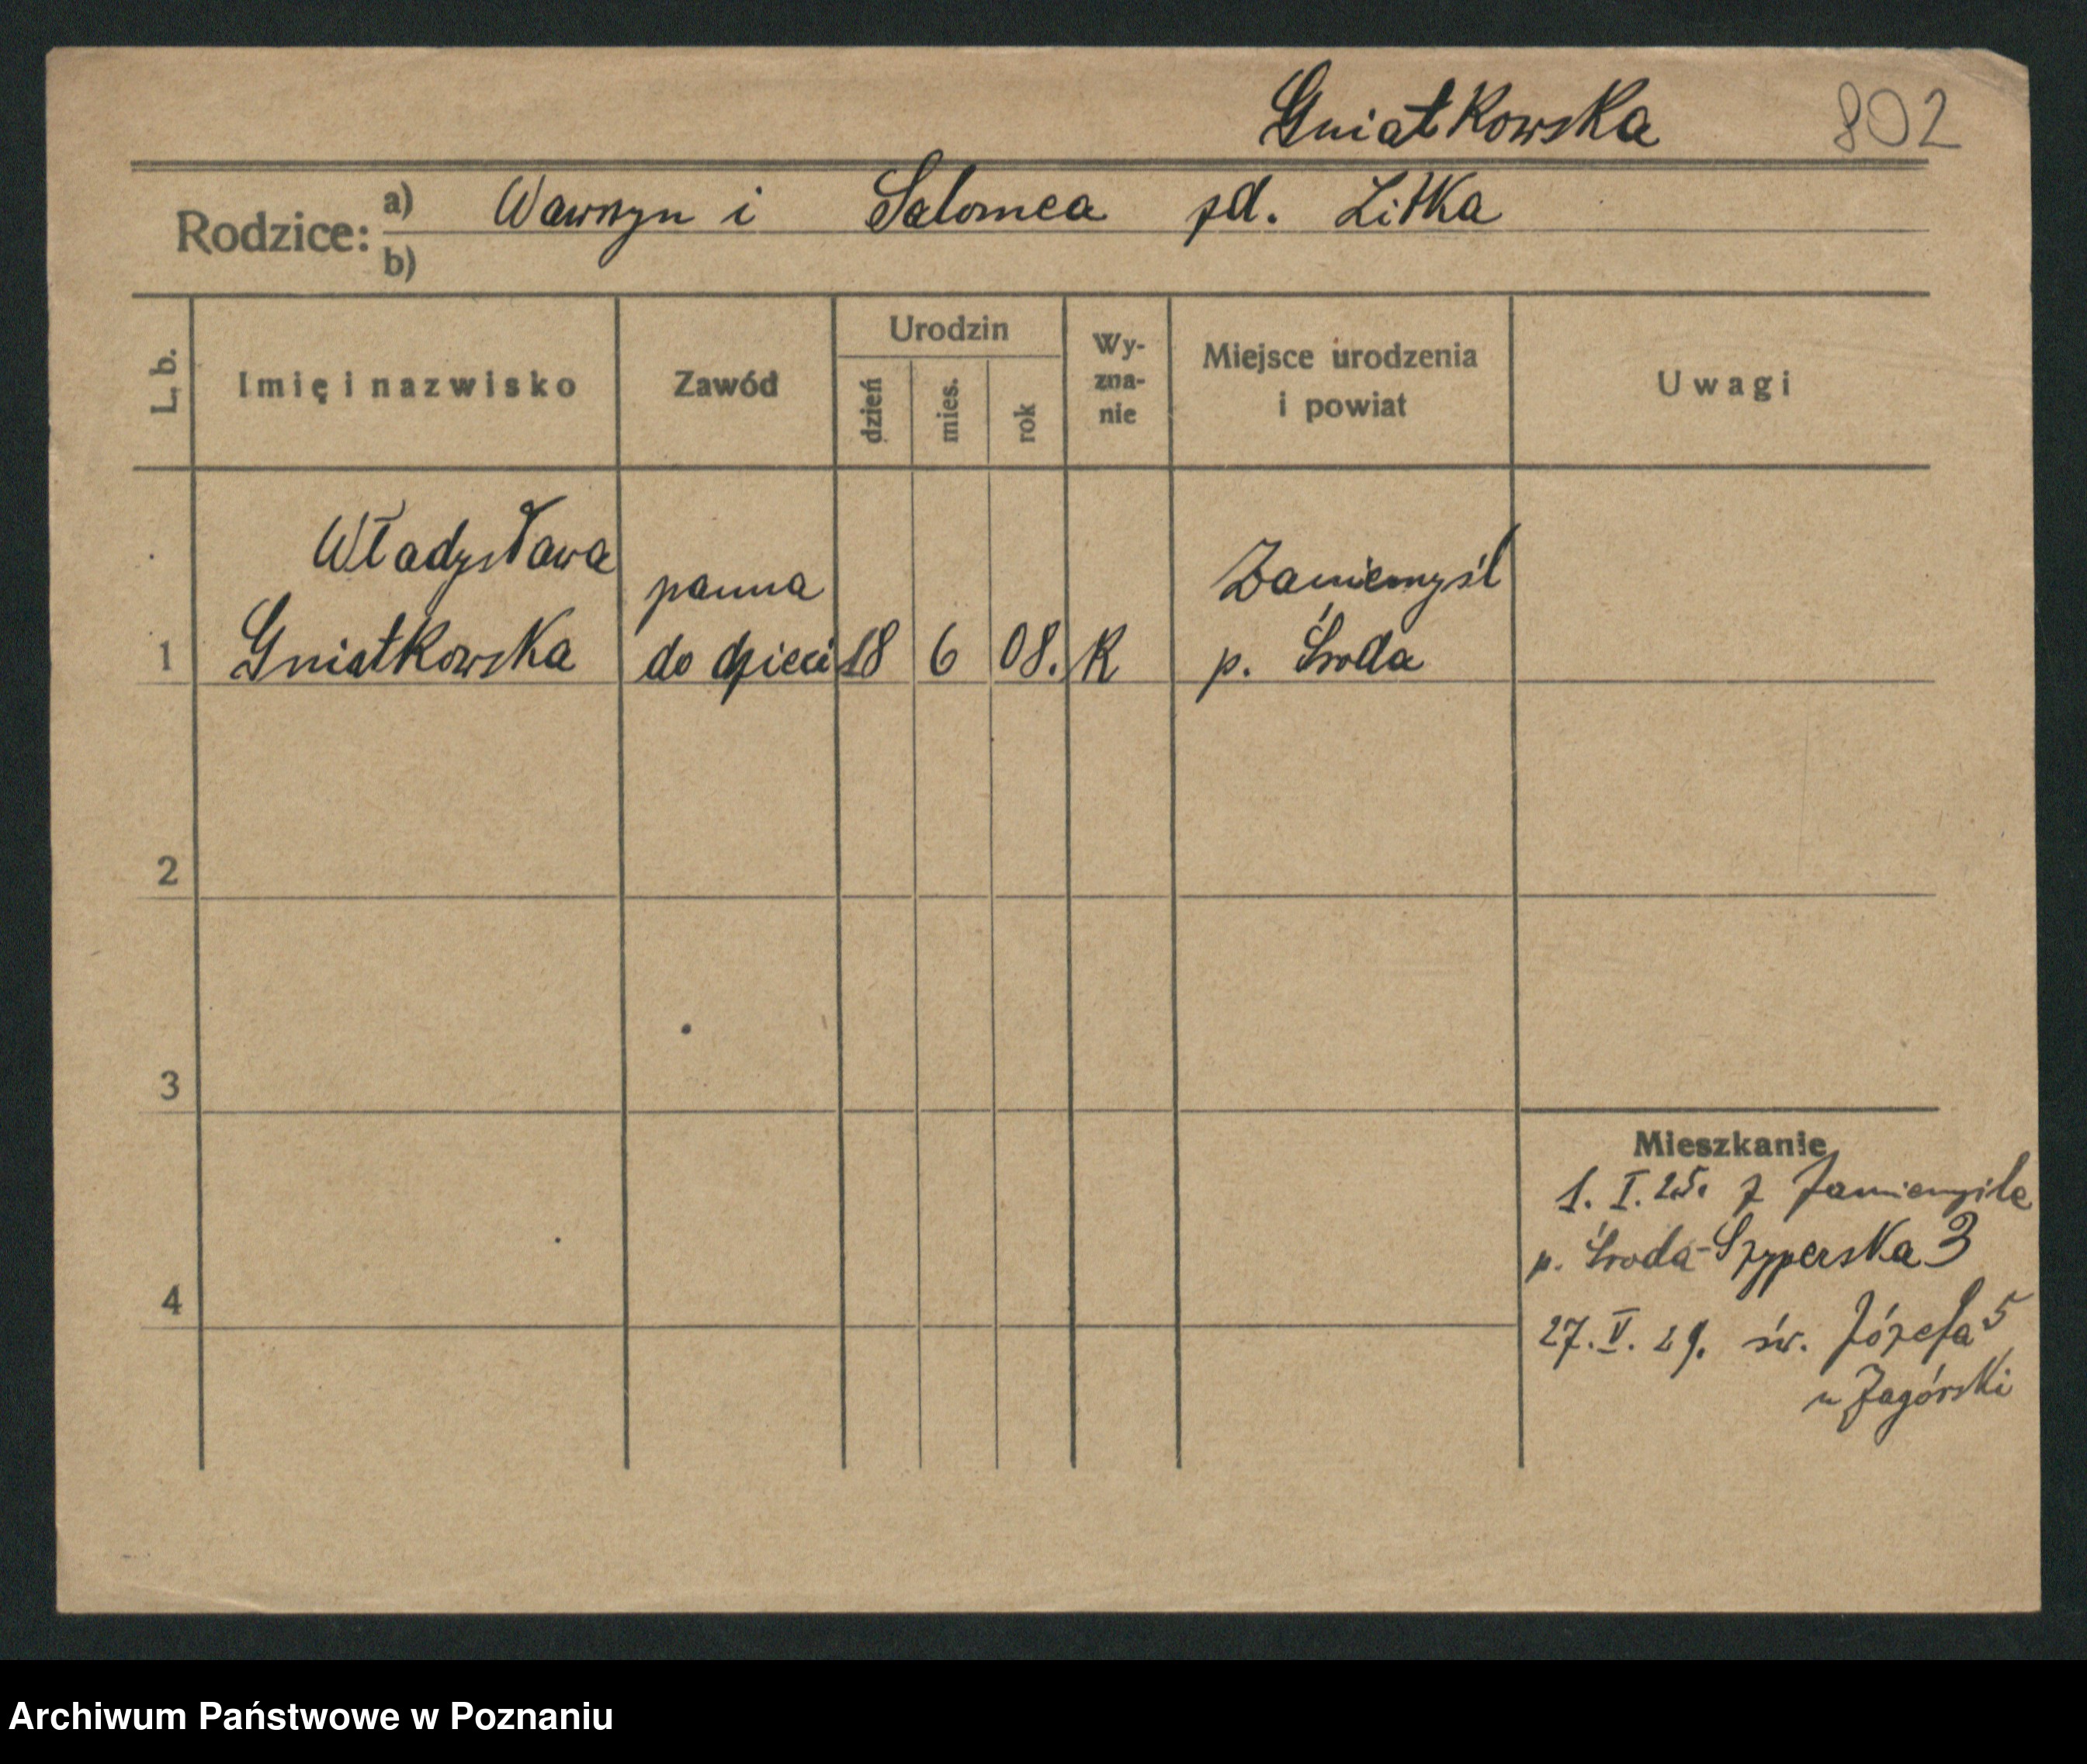 Gniatkowska 802
Rodzice: a) Wawrzyn i Salomea zd. Litka
b)
L. b. Imię i nazwisko Zawód Urodzin dzień mies. rok Wy-zna-nie Miejsce urodzenia i powiat Uwagi
Władysława
Gniatkowska
panna
do dzieci
1 18 6 08. K
Zaniemyśl
p. Środa
2
3
4
Mieszkanie
1. I. 25. z Zaniemyśla
p. Środa - Szyperska 3
27. V. 29. św. Józefa 5
u Zagórski
Archiwum Państwowe w Poznaniu